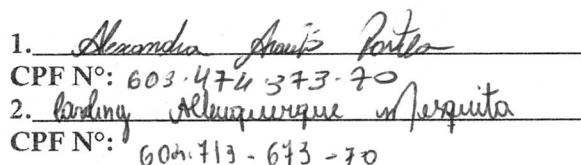 1. Alexandra Araújo Portela
CPF N°: 603.474.373-70
2. Albuquerque Mesquita
CPF N°: 604.713-673-70